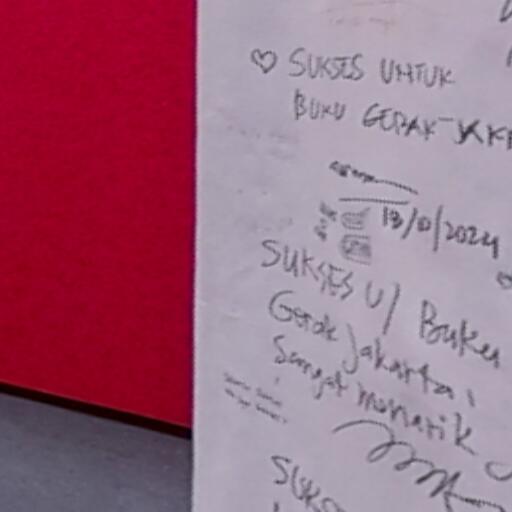 ♡ SUKSES UNTUK
BUKU GERAK JAKA
13/10/2024
SUKSES U/ Buku
Gerak Jakarta,
Sangat menarik
SUKS